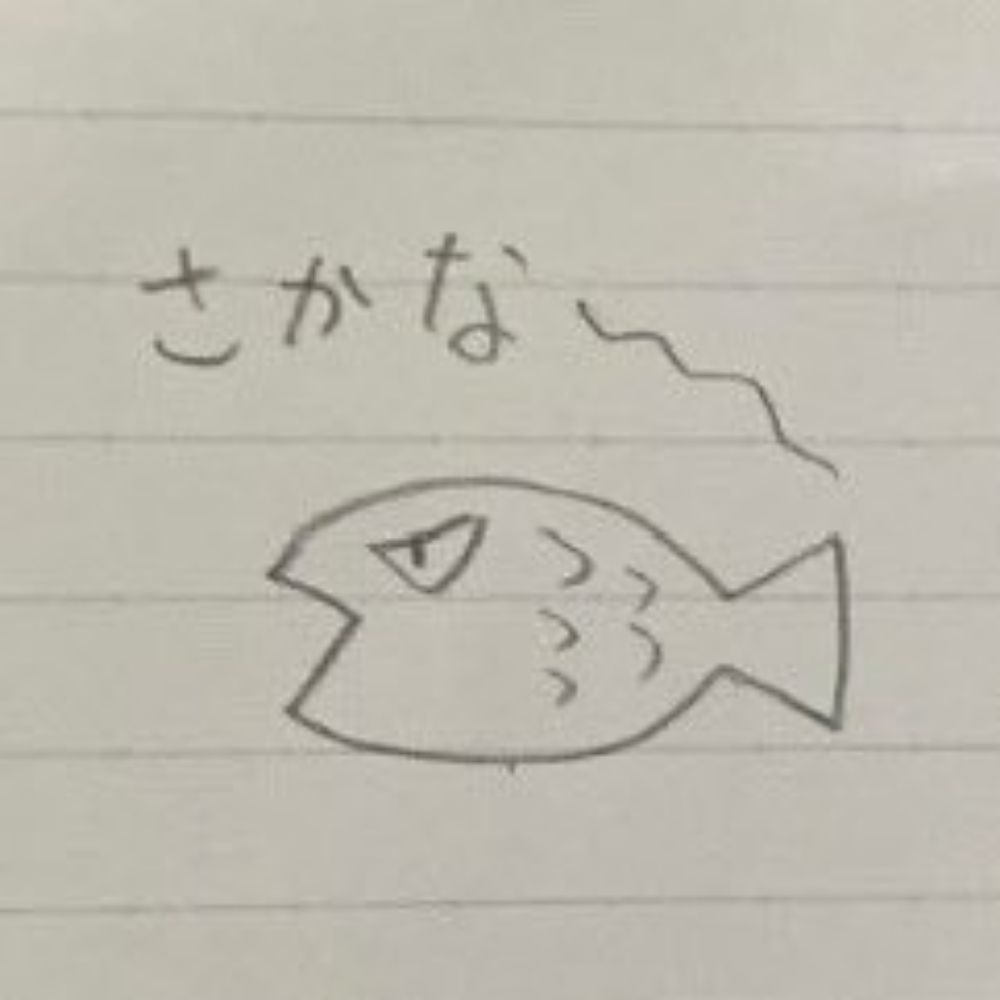 さかな